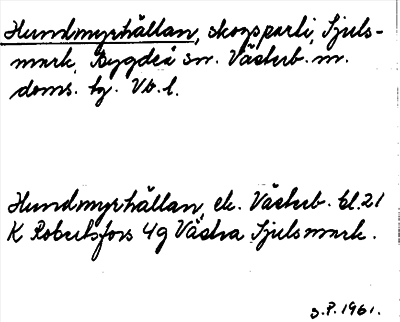 Hundmyrhällan, skogsparti, Sjuls-
mark, Bygdeå sn. Västerb. n.
doms. hg. Vb. l.
Hundmyrhällan, ek. Västerb. bl. 21
K Robertsfors 4g Västra Sjulsmark.
S.P. 1961.